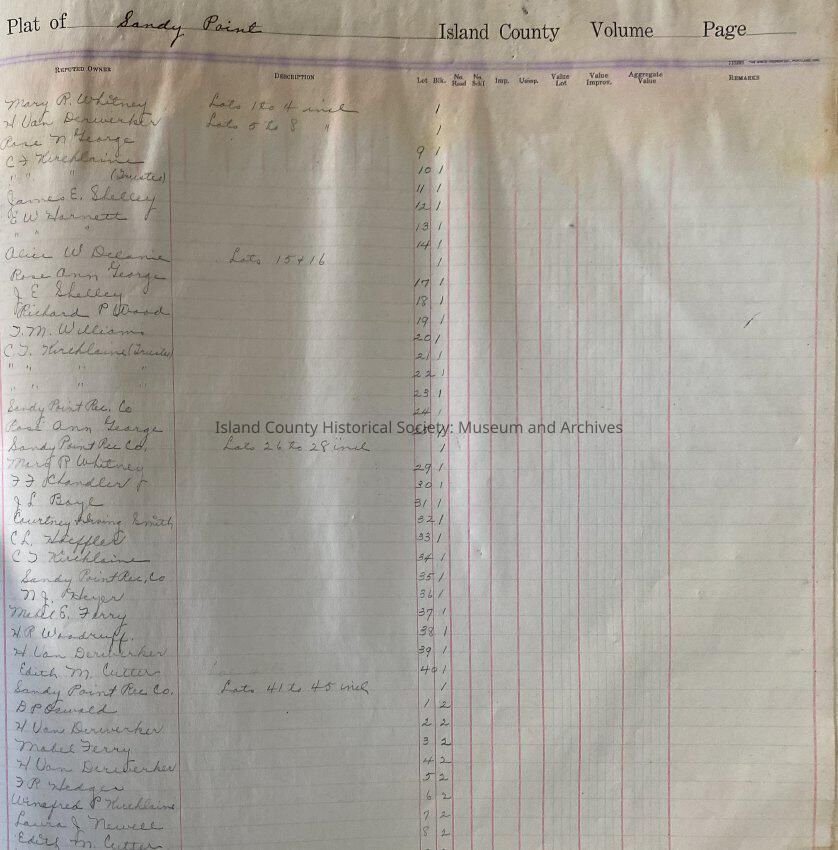 Plat of Sandy Point Island County Volume Page
REPUTED OWNER DESCRIPTION Lot Blk. No. Road No. Schl Imp. Unimp. Value Lot Value Improv. Aggregate Value REMARKS
Mary R. Whitney Lots 1 to 4 incl 1
H Van Derwerker Lots 5 to 8 " 1
Rose N George 9 1
C F Kirchlaine 10 1
" " " (Trustee) 11 1
James E. Shelley 12 1
E W Harnett 13 1
" " " 14 1
Alice W Delanie Lots 15 + 16 1
Rose Ann George 17 1
J E Shelley 18 1
Richard P Wood 19 1
T. M. Williams 20 1
C. F. Kirchlaine (Trustee) 21 1
" " " " 22 1
" " " " 23 1
Sandy Point Rec. Co 24 1
Rose Ann George 1
Island County Historical Society: Museum and Archives
Sandy Point Rec Co. Lots 26 to 28 incl 1
Mary R Whitney 29 1
F F Chandler 30 1
J L Boyl 31 1
Courtney Irving Smith 32 1
C L. Hoeffler 33 1
C F Kirchlaine 34 1
Sandy Point Rec, Co 35 1
N J. Heyer 36 1
Mabel E. Ferry 37 1
H R Woodruff. 38 1
H Van Derwerker 39 1
Edith M. Cutter 40 1
Sandy Point Rec Co. Lots 41 to 45 incl 1
B P Oswald 1 2
H Van Derwerker 2 2
Mabel Ferry 3 2
H Van Derwerker 4 2
F R Hedges 5 2
Winafred P Kirchlaine 6 2
Laura J Newell 7 2
Edith M Cutter 8 2